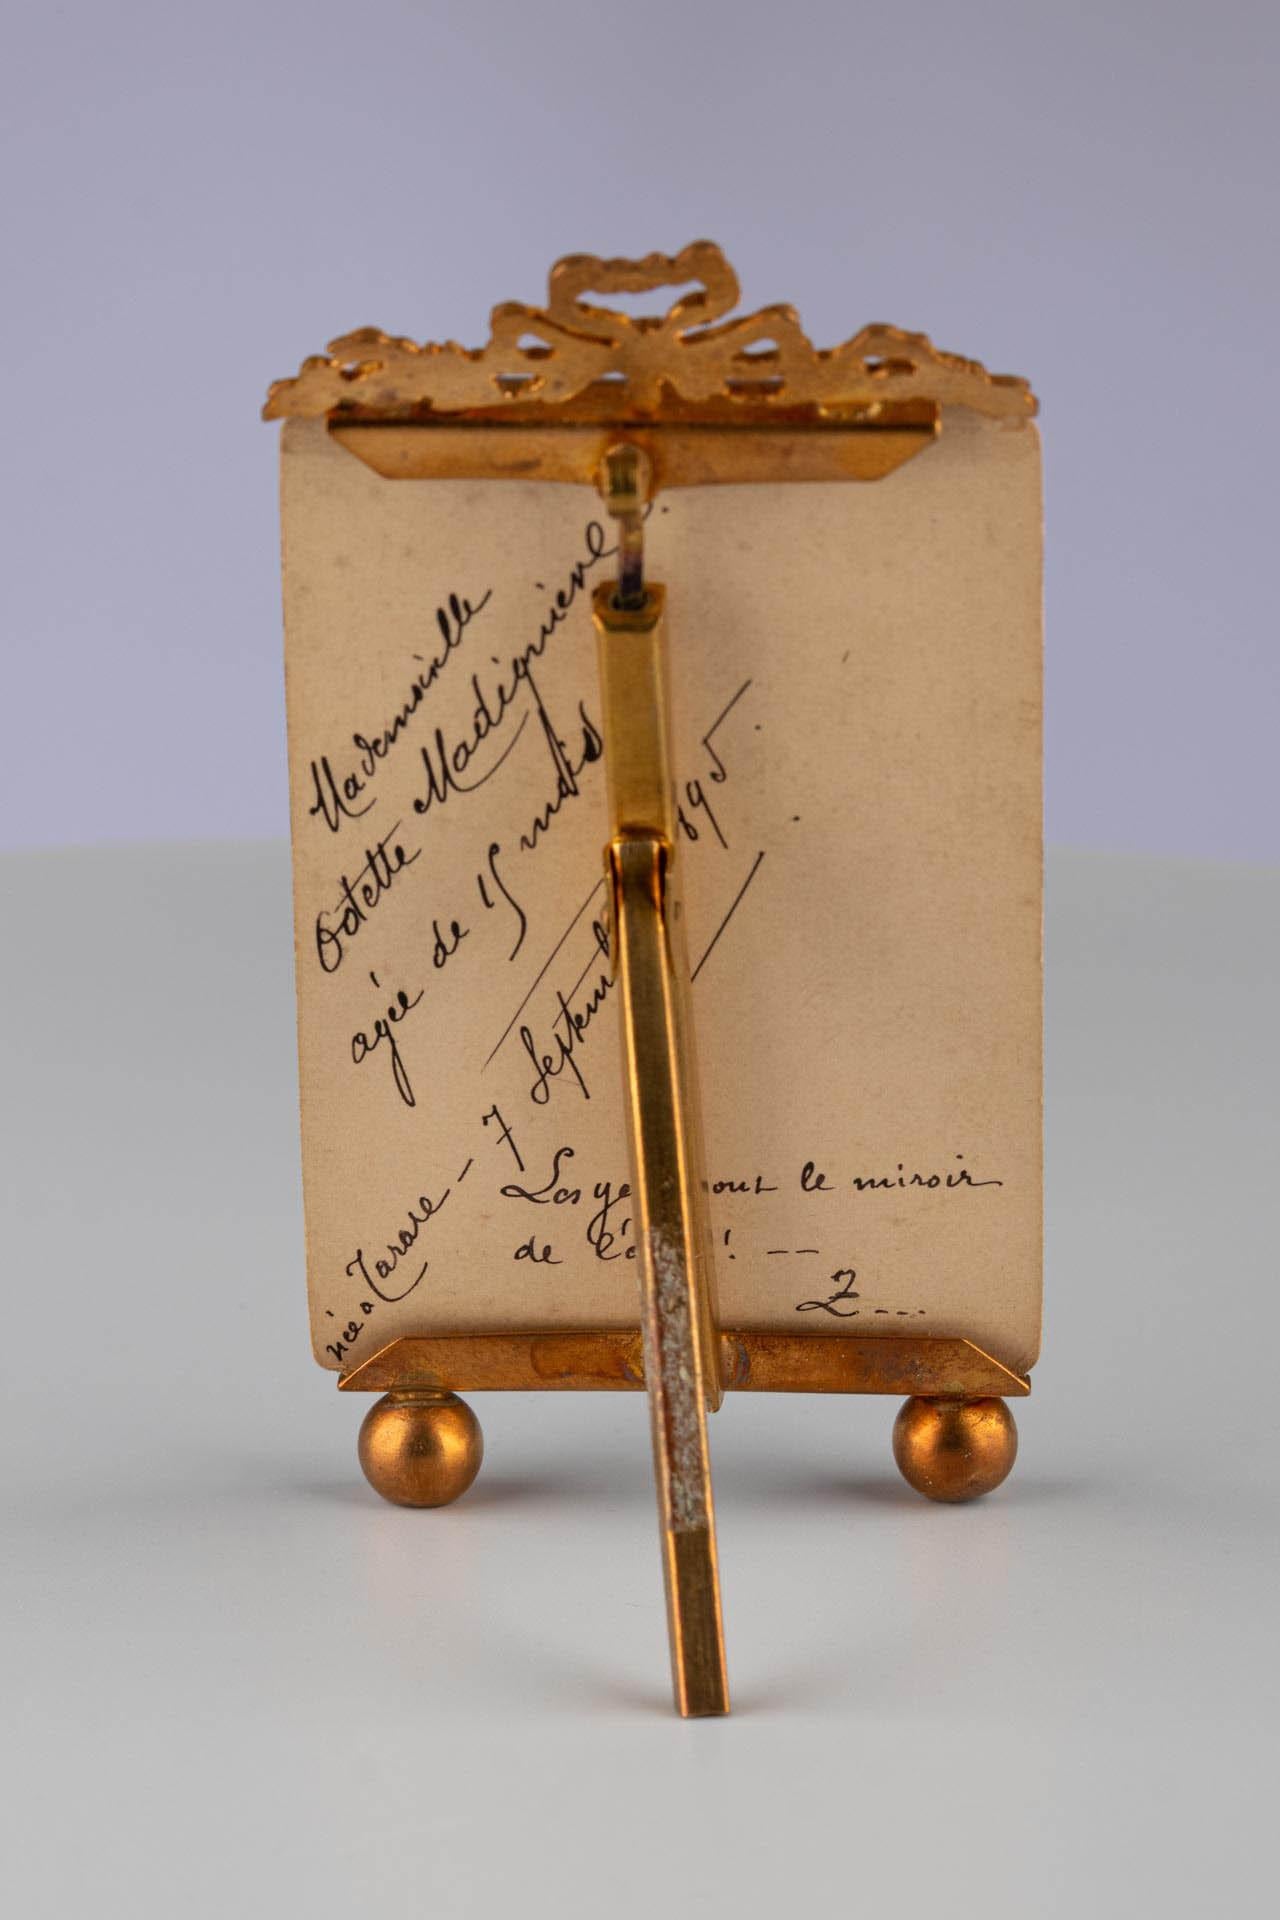 Mademoiselle
Odette
agée de 15 mois
née à Tarare - 7 Septemb 895.
Les ye ont le miroir
de l'a ! --
Z...